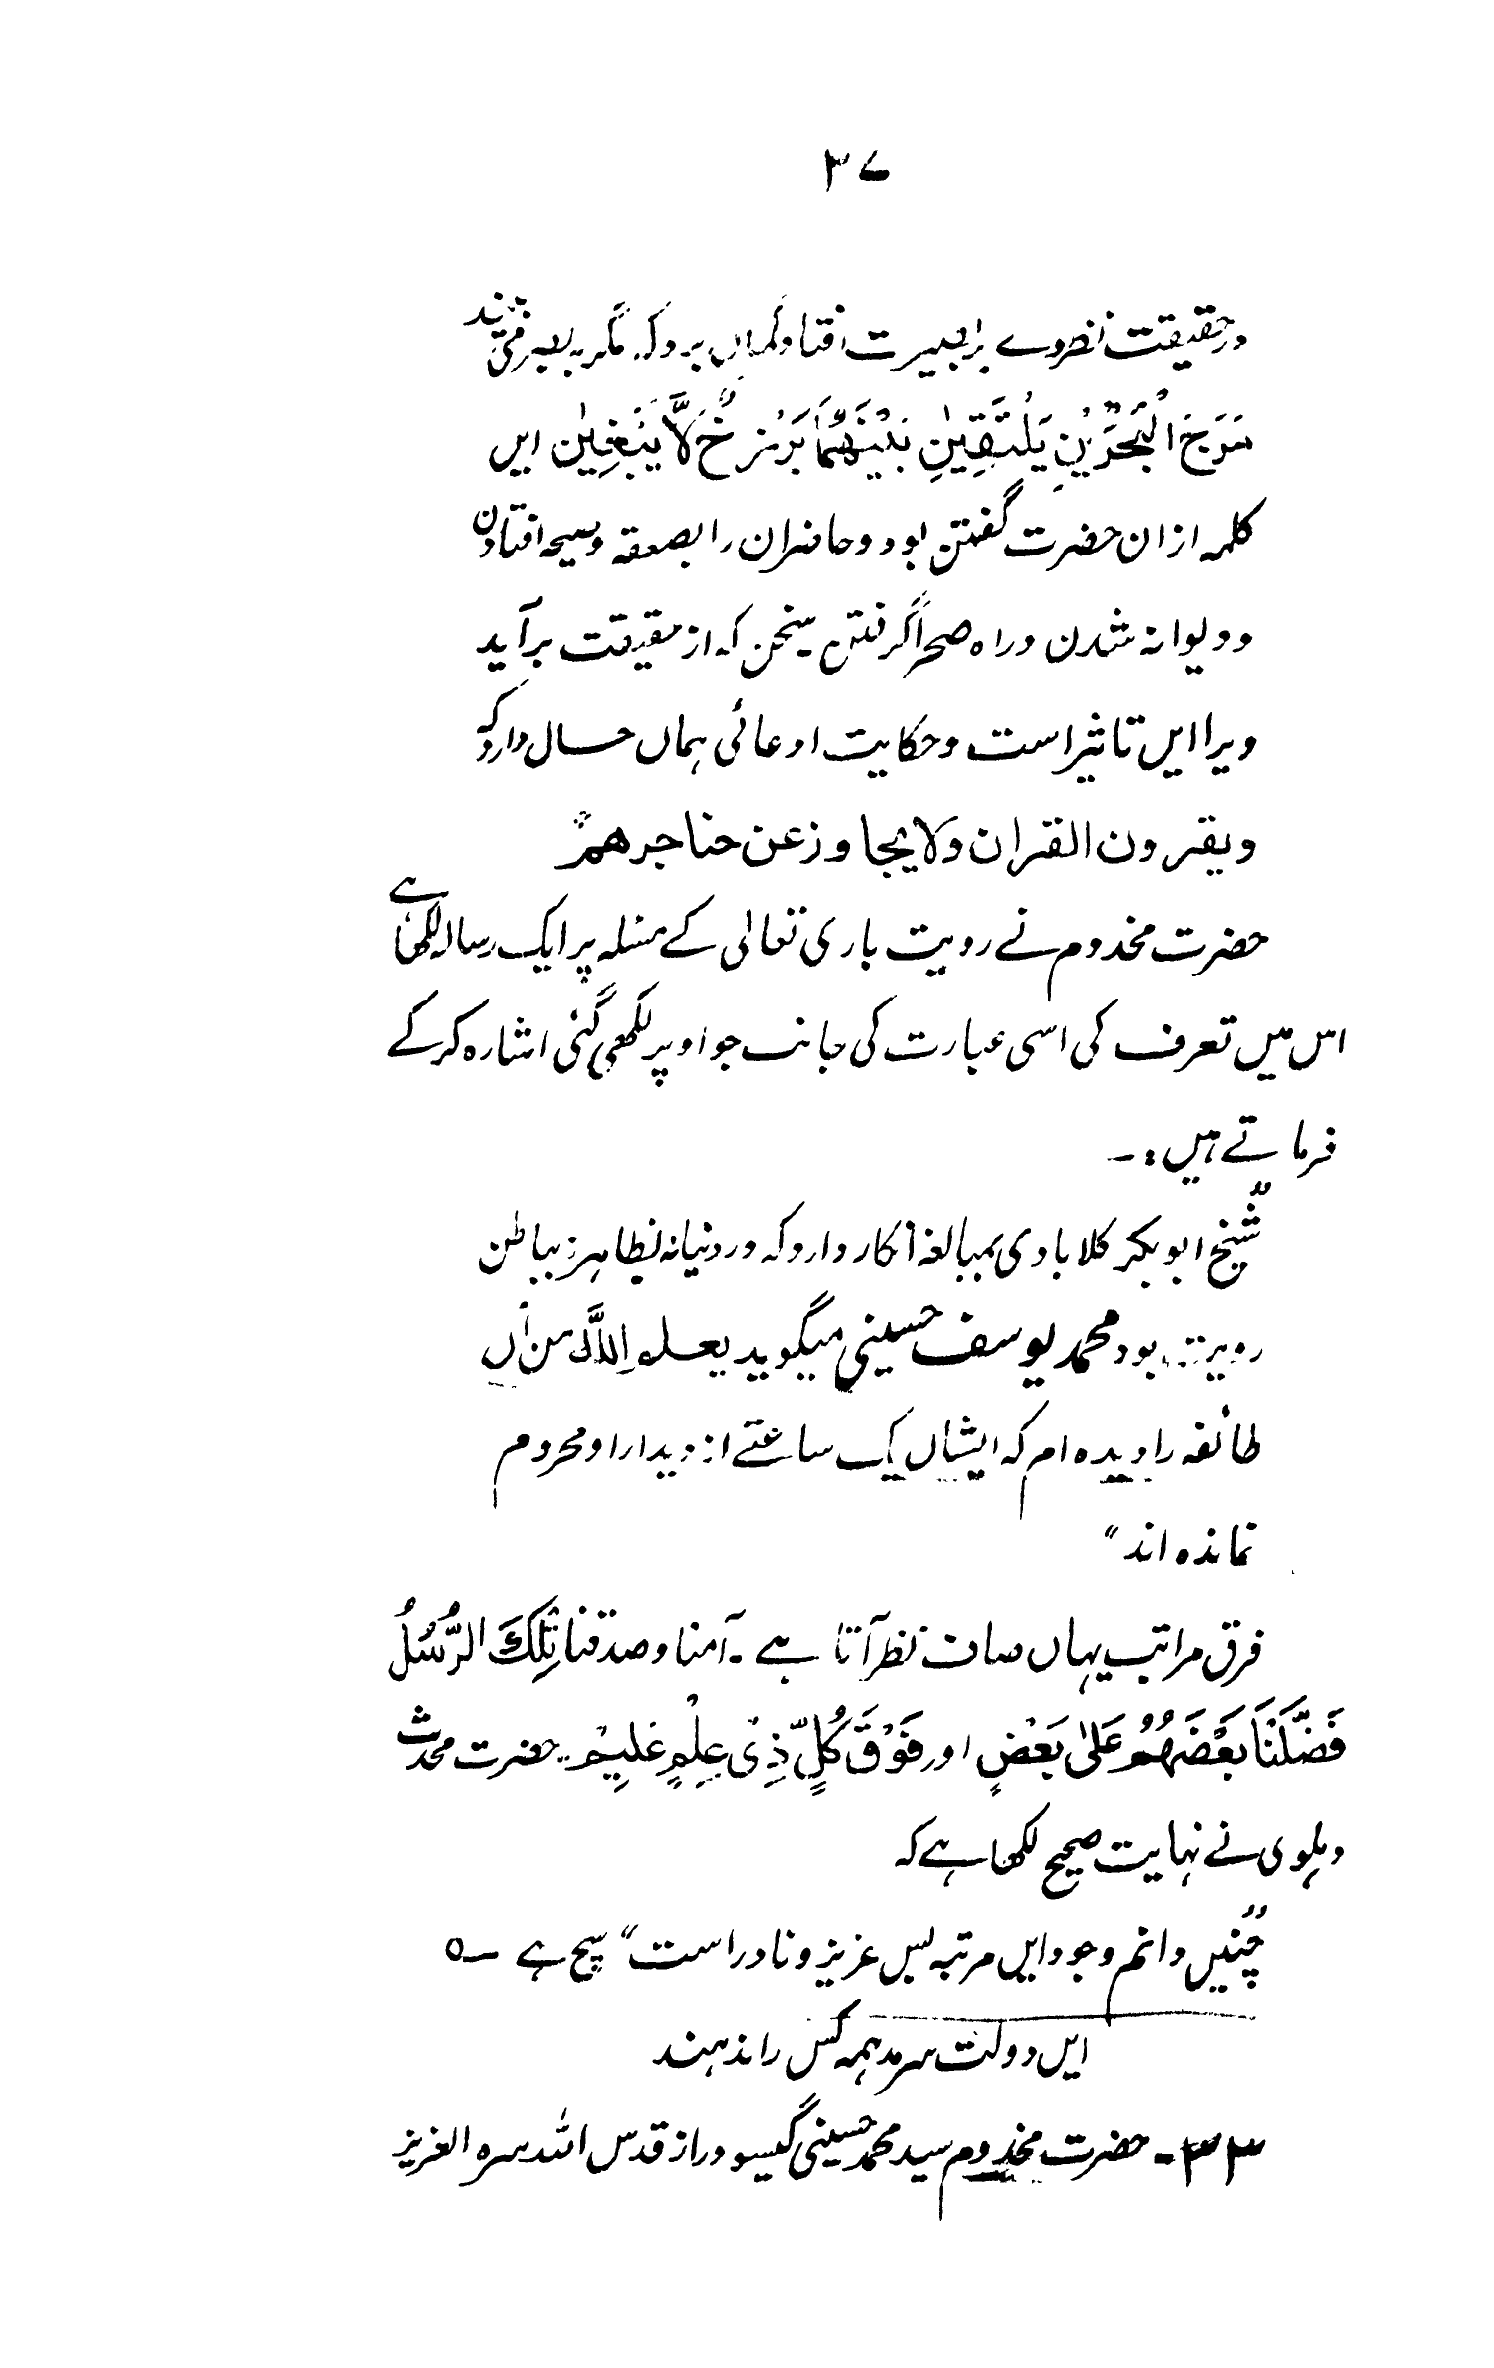 ۳۷
درحقیقت نظروے بر بصیرت افتاد گماں برد کہ مگر بہ بصر می بیند
مَرَجَ الْبَحْرَيْنِ يَلْتَقِيٰنِ بَيْنَهُمَا بَرْزَخٌ لَّا يَبْغِيٰنِ ایں
کلمہ ازان حضرت گفتن بود و حاضران را بصعقہ و صیحہ افتادن
و دیوانہ شدن و راہ صحرا گرفتن سخن کہ از حقیقت برآید
ویرا ایں تاثیر است و حکایت ادعائی ہماں حال دارد کہ
ویقرون القران ولا یجاوز عن حناجرهم"
حضرت مخدوم نے رویت باری تعالیٰ کے مسئلہ پر ایک رسالہ لکھا ہے
اس میں تعرف کی اسی عبارت کی جانب جو اوپر لکھی گئی اشارہ کر کے
فرماتے ہیں :۔
"شیخ ابوبکر کلابادی بمبالغہ انکار دارد کہ در دنیا نہ بظاہر نہ بباطن
رویت بود محمد یوسف حسینی میگوید یعلم اللّٰہ من آں
طائفہ را دیدہ ام کہ ایشاں یک ساعتے از دیدار او محروم
نماندہ اند"
فرق مراتب یہاں صاف نظر آتا ہے ۔ آمنا وصدقنا تِلْكَ الرُّسُلُ
فَضَّلْنَا بَعْضَهُمْ عَلىٰ بَعْضٍ اور فَوْقَ كُلِّ ذِىْ عِلْمٍ عَلِيْمٌ ۔ حضرت محدث
دہلوی نے نہایت صحیح لکھا ہے کہ
"چنیں دانم وجود ایں مرتبہ بس عزیز و نادر است" سچ ہے ــہ
ایں دولت سرمد ہمہ کس را ندہند
۳۳ ۔ حضرت مخدوم سید محمد حسینی گیسو دراز قدس اللہ سرہ العزیز